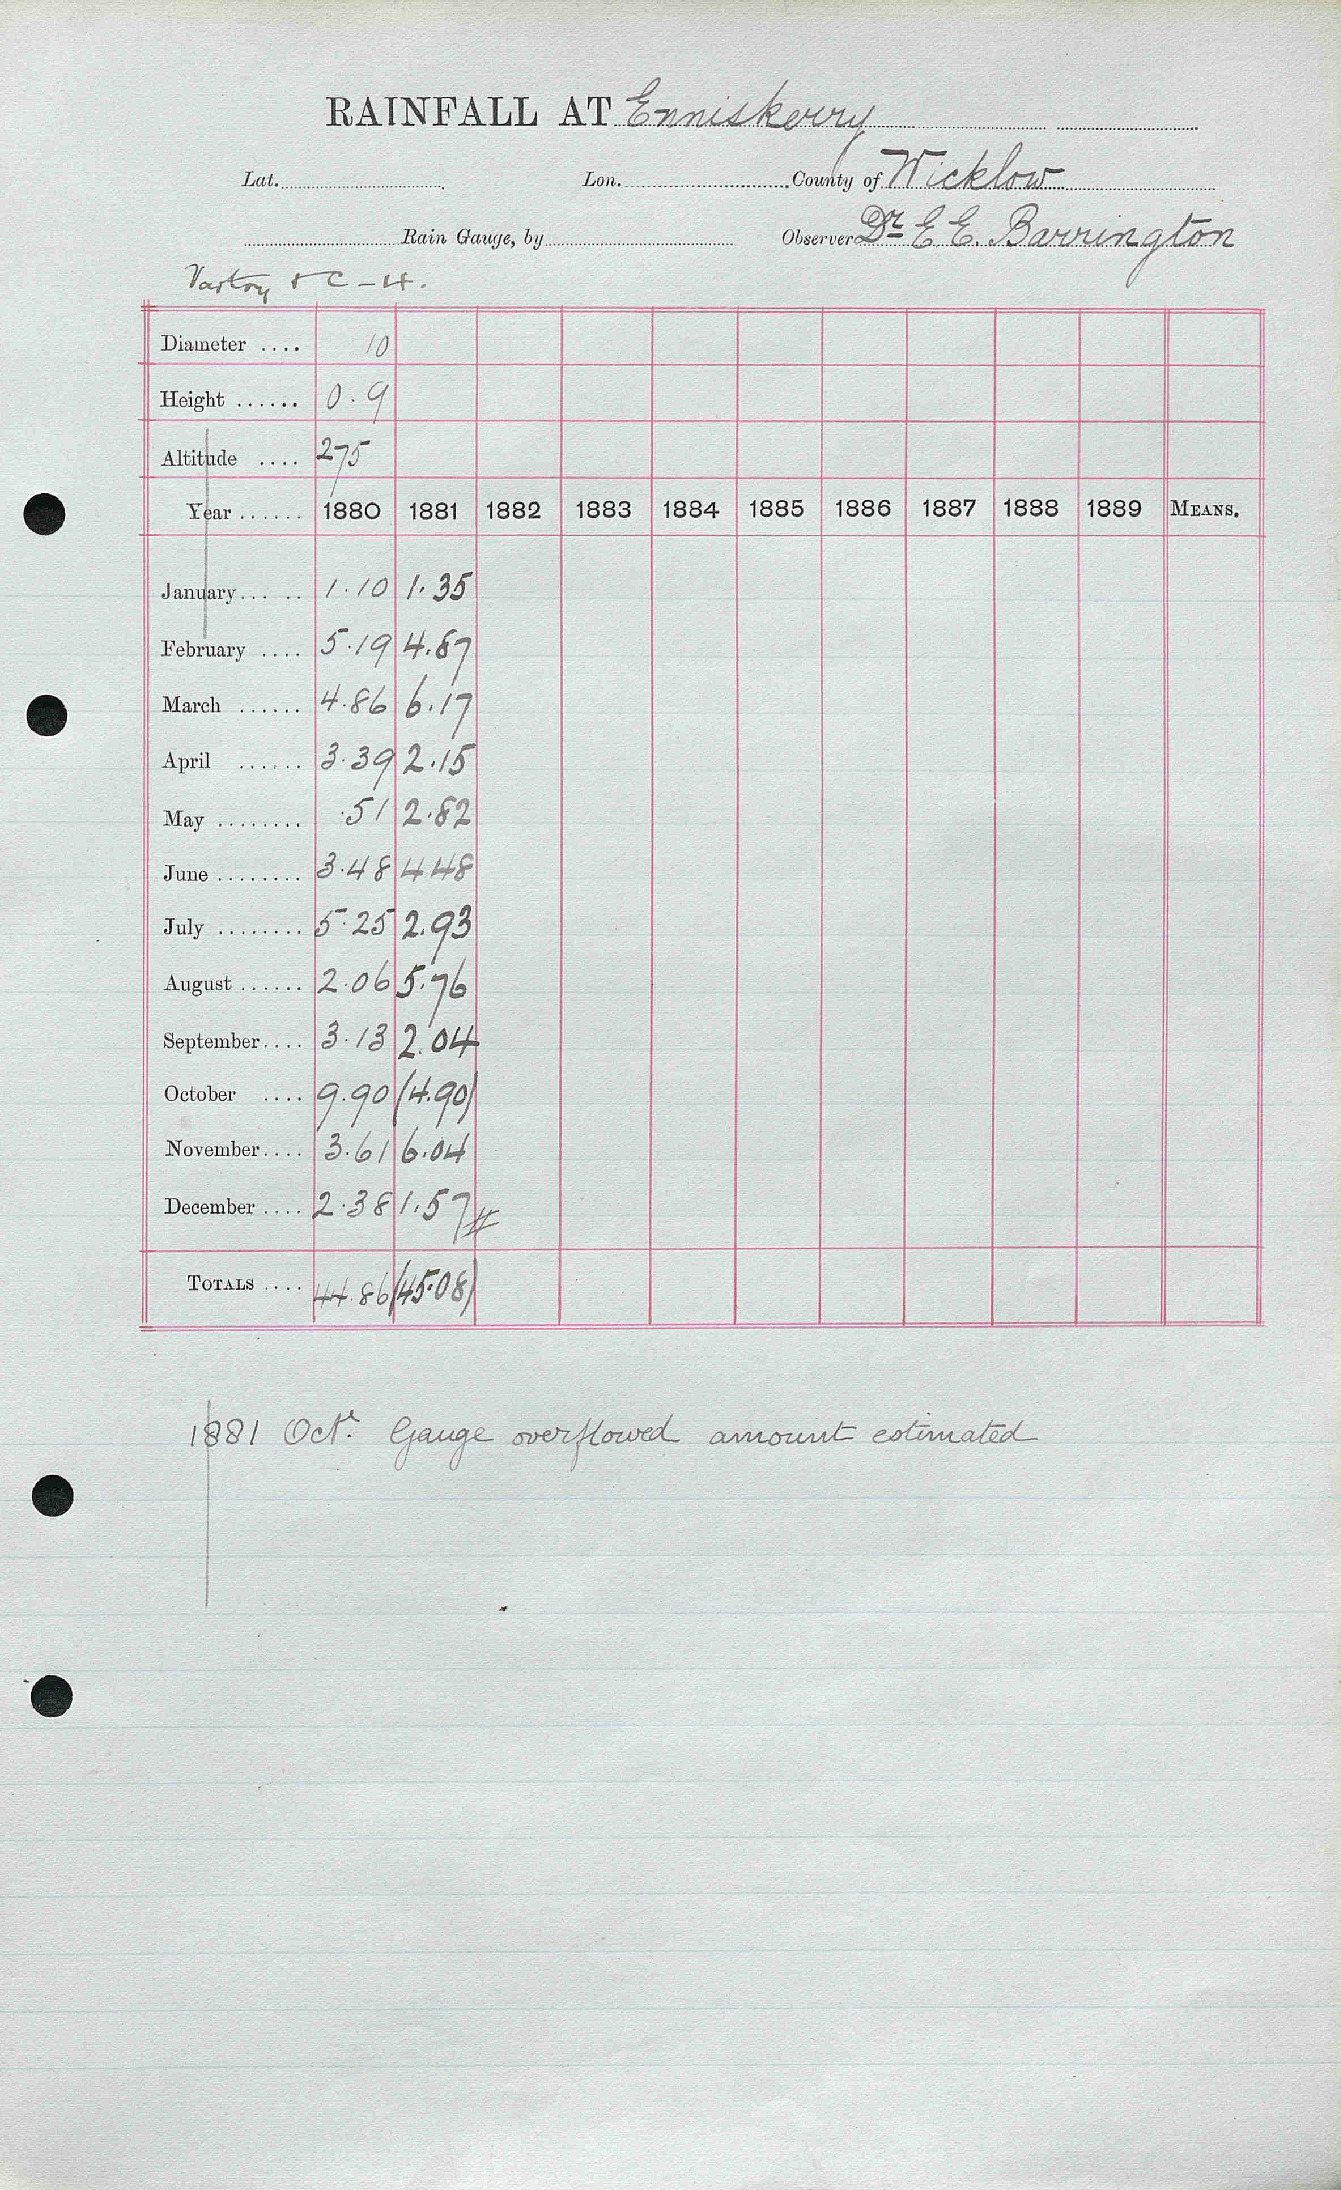 RAINFALL AT Enniskerry
Lat. Lon. County of Wicklow
Rain Gauge, by Observer Dr E E. Barrington
Vartry & C-H.
Diameter .... 10
Height ...... 0.9
Altitude .... 275
Year ...... 1880 1881 1882 1883 1884 1885 1886 1887 1888 1889 MEANS.
January... .. 1.10 1.35
February .... 5.19 4.87
March ...... 4.86 6.17
April ...... 3.39 2.15
May ........ .51 2.82
June ........ 3.48 4.48
July ........ 5.25 2.93
August ...... 2.06 5.76
September.... 3.13 2.04
October .... 9.90 (4.90)
November.... 3.61 6.04
December .... 2.38 1.57 #
TOTALS .... 44.86 (45.08)
1881 Octr. Gauge overflowed amount estimated